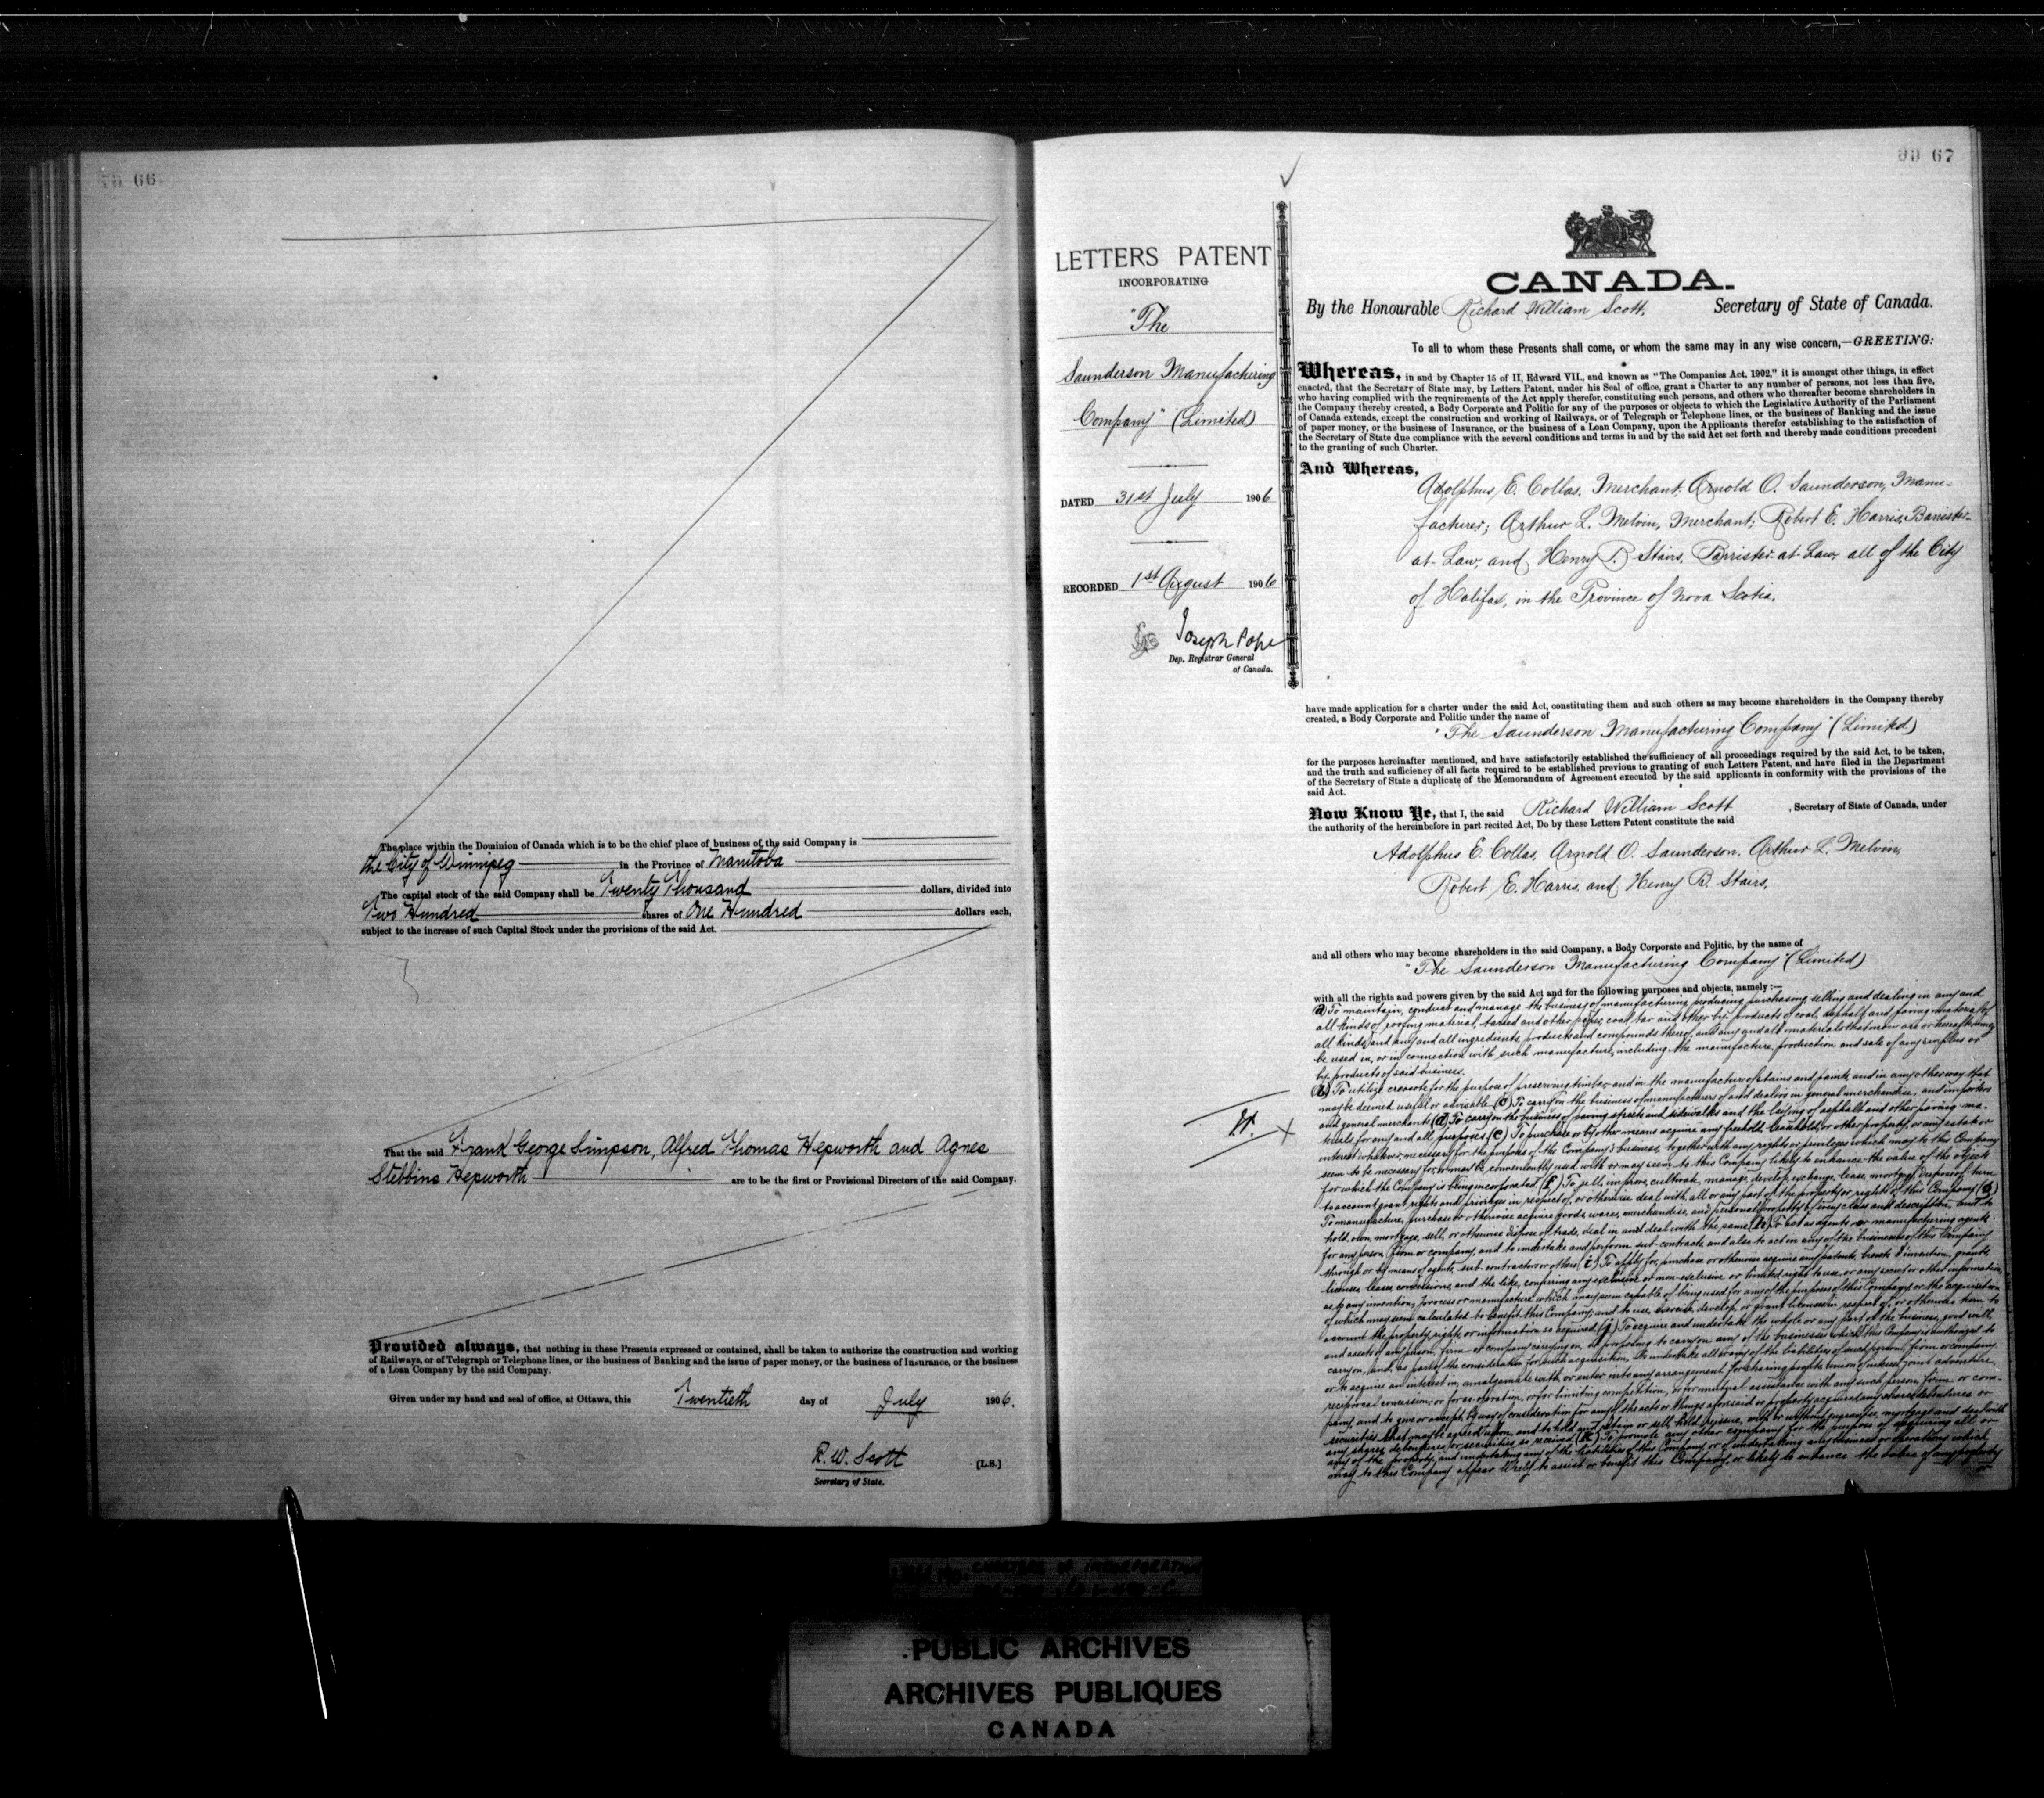 66
The place within the Dominion of Canada which is to be the chief place of business of the said Company is
the City of Winnipeg in the Province of Manitoba
The capital stock of the said Company shall be Twenty Thousand dollars, divided into
Two Hundred shares of One Hundred dollars each,
subject to the increase of such Capital Stock under the provisions of the said Act.
That the said Frank George Simpson, Alfred Thomas Hepworth and Agnes
Stebbins Hepworth are to be the first or Provisional Directors of the said Company.
Provided always, that nothing in these Presents expressed or contained, shall be taken to authorize the construction and working
of Railways, or of Telegraph or Telephone lines, or the business of Banking and the issue of paper money, or the business of Insurance, or the business
of a Loan Company by the said Company.
Given under my hand and seal of office, at Ottawa, this Twentieth day of July 1906.
R. W. Scott [L.S.]
Secretary of State.
67
LETTERS PATENT
INCORPORATING
"The
Saunderson Manufacturing
Company" (Limited)
DATED 31st July 1906
RECORDED 1st August 1906
Joseph Pope
Dep. Registrar General
of Canada.
CANADA.
By the Honourable Richard William Scott, Secretary of State of Canada.
To all to whom these Presents shall come, or whom the same may in any wise concern,—GREETING:
Whereas, in and by Chapter 15 of II, Edward VII., and known as "The Companies Act, 1902," it is amongst other things, in effect
enacted, that the Secretary of State may, by Letters Patent, under his Seal of office, grant a Charter to any number of persons, not less than five,
who having complied with the requirements of the Act apply therefor, constituting such persons, and others who thereafter become shareholders in
the Company thereby created, a Body Corporate and Politic for any of the purposes or objects to which the Legislative Authority of the Parliament
of Canada extends, except the construction and working of Railways, or of Telegraph or Telephone lines, or the business of Banking and the issue
of paper money, or the business of Insurance, or the business of a Loan Company, upon the Applicants therefor establishing to the satisfaction of
the Secretary of State due compliance with the several conditions and terms in and by the said Act set forth and thereby made conditions precedent
to the granting of such Charter.
And Whereas,
Adolphus E. Collas, Merchant; Arnold O. Saunderson, Manu-
facturer; Arthur L. Melvin, Merchant; Robert E. Harris, Barrister-
at-Law, and Henry B. Stairs, Barrister-at-Law, all of the City
of Halifax, in the Province of Nova Scotia.
have made application for a charter under the said Act, constituting them and such others as may become shareholders in the Company thereby
created, a Body Corporate and Politic under the name of
"The Saunderson Manufacturing Company" (Limited)
for the purposes hereinafter mentioned, and have satisfactorily established the sufficiency of all proceedings required by the said Act, to be taken,
and the truth and sufficiency of all facts required to be established previous to granting of such Letters Patent, and have filed in the Department
of the Secretary of State a duplicate of the Memorandum of Agreement executed by the said applicants in conformity with the provisions of the
said Act.
Now Know Ye, that I, the said Richard William Scott, Secretary of State of Canada, under
the authority of the hereinbefore in part recited Act, Do by these Letters Patent constitute the said
Adolphus E. Collas, Arnold O. Saunderson, Arthur L. Melvin,
Robert E. Harris, and Henry B. Stairs,
and all others who may become shareholders in the said Company, a Body Corporate and Politic, by the name of
"The Saunderson Manufacturing Company" (Limited)
with all the rights and powers given by the said Act and for the following purposes and objects, namely :—
(a) To maintain, conduct and manage the business of manufacturing, producing, purchasing, selling and dealing in any and
all kinds of roofing material, tarred and other paper, coal tar and other by-products of coal, asphalt and paving material of
all kinds and any and all ingredients, products and compounds thereof, and any and all materials that now are or hereafter may
be used in, or in connection with such manufacture, including the manufacture, production and sale of any surplus or
by-products of said business.
(b) To utilize creosote for the purpose of preserving timber, and in the manufacture of stains and paints, and in any other way that
may be deemed useful or advisable (c) To carry on the business of manufacturers of and dealers in general merchandise, and importers
and general merchants (d) To carry on the business of paving streets and sidewalks and the laying of asphalt and other paving ma-
terials for any and all purposes (e) To purchase or by other means acquire any freehold, leasehold, or other property, or any estate or
interest whatever, necessary for the purposes of the Company's business, together with any rights or privileges which may to this Company
seem to be necessary for, or may be conveniently used with or may seem to this Company likely to enhance the value of the objects
for which the Company is being incorporated (f) To sell, improve, cultivate, manage, develop, exchange, lease, mortgage, dispose of, turn
to account, grant rights and privileges in respect of, or otherwise deal with, all or any part of the property or rights of this Company (g)
To manufacture, purchase or otherwise acquire goods, wares, merchandise, and personal property of every class and description, and to
hold, own, mortgage, sell, or otherwise dispose of, trade, deal in and deal with the same (h) To act as agents or manufacturing agents
for any person, firm or company, and to undertake and perform sub-contracts and also to act in any of the businesses of this Company
through or by means of agents, sub-contractors or others (i) To apply for, purchase or otherwise acquire any patents, brevets d'invention, grants,
licenses, leases, concessions, and the like, conferring any exclusive or non-exclusive or limited right to use, or any secret or other information
as to any invention, process or manufacture which may seem capable of being used for any of the purposes of this Company or the acquisition
of which may seem calculated to benefit this Company, and to use, exercise, develop, or grant licenses in respect of, or otherwise turn to
account the property, rights or information so acquired (j) To acquire and undertake the whole or any part of the business, good will,
and assets of any person, firm or company carrying on, or proposing to carry on any of the businesses which this Company is authorized to
carry on, and, as part of the consideration for such acquisition, to undertake all or any of the liabilities of such person, firm or company
or to acquire an interest in, amalgamate with or enter into any arrangement for sharing profits, union of interest, joint adventure,
reciprocal concession, or for co-operation, or for limiting competition, or for mutual assistance with any such person, firm or com-
pany, and to give or accept by way of consideration for any of the acts or things aforesaid or property acquired any shares, debentures or
securities that may be agreed upon, and to hold and retain or sell, hold, reissue, with or without guarantee, mortgage and deal with
any shares, debentures or securities so received (k) To promote any other company for the purpose of acquiring all or
any of the property, and undertaking any of the liabilities of this Company, or of undertaking any business or operations which
may to this Company appear likely to assist or benefit this Company, or likely to enhance the value of any property
or
CHARTERS OF INCORPORATION
PUBLIC ARCHIVES
ARCHIVES PUBLIQUES
CANADA